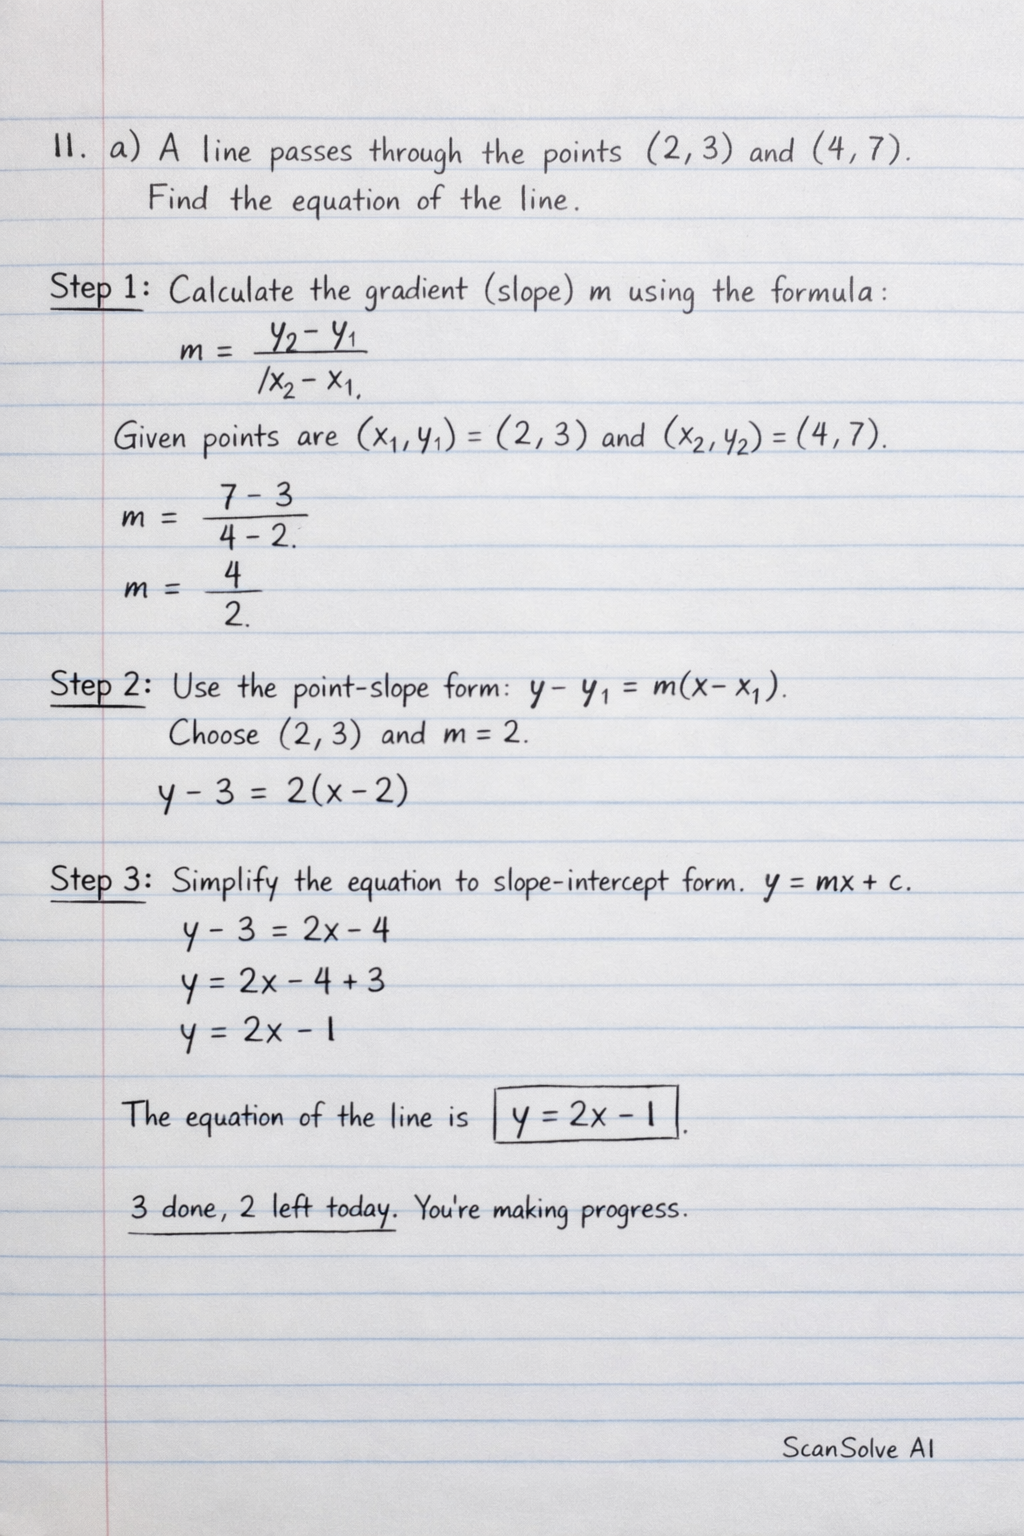 11. a) A line passes through the points (2, 3) and (4, 7).
Find the equation of the line.
Step 1: Calculate the gradient (slope) m using the formula:
m = y₂ - y₁
/x₂ - x₁.
Given points are (x₁, y₁) = (2, 3) and (x₂, y₂) = (4, 7).
m = 7 - 3
4 - 2.
m = 4
2.
Step 2: Use the point-slope form: y - y₁ = m(x - x₁).
Choose (2, 3) and m = 2.
y - 3 = 2(x - 2)
Step 3: Simplify the equation to slope-intercept form. y = mx + c.
y - 3 = 2x - 4
y = 2x - 4 + 3
y = 2x - 1
The equation of the line is y = 2x - 1.
3 done, 2 left today. You're making progress.
ScanSolve AI